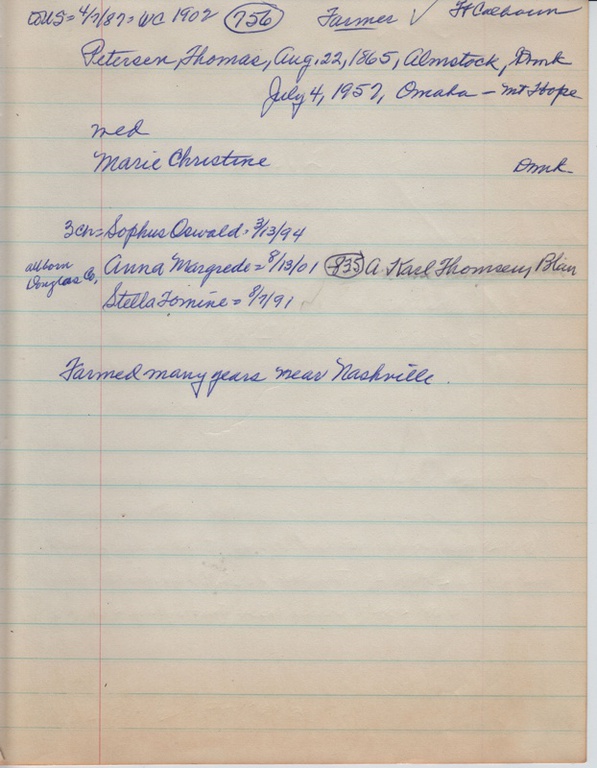 COUS = 4/7/87 = WC 1902 (756) Farmer ✓ Ft Calhoun
Petersen, Thomas, Aug. 22, 1865, Almstock, Dmk
July 4, 1957, Omaha - Mt Hope
med
Marie Christine Dmk.
3 ch = Sophus Oswald = 3/13/94
all born Douglas Co, Anna Magrede = 8/13/01 (835) A. Karl Thomsen, Blair
Stella Tomine = 8/7/91
Farmed many years near Nashville.